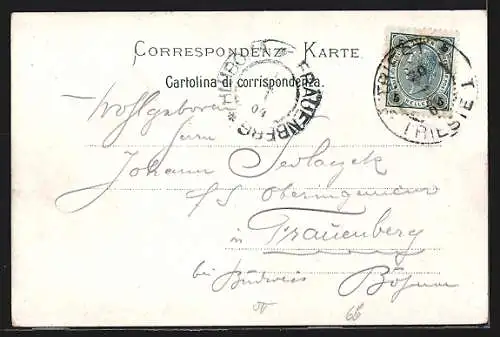 CORRESPONDENZ-KARTE
Cartolina di corrispondenza.
TRIEST
TRIESTE
5 5
HLUBOKÁ
FRAUENBERG
Wohlgeboren
Herrn
Johann Sedlaczek
Oberingenieur
in Frauenberg
bei Budweis Böhmen
66